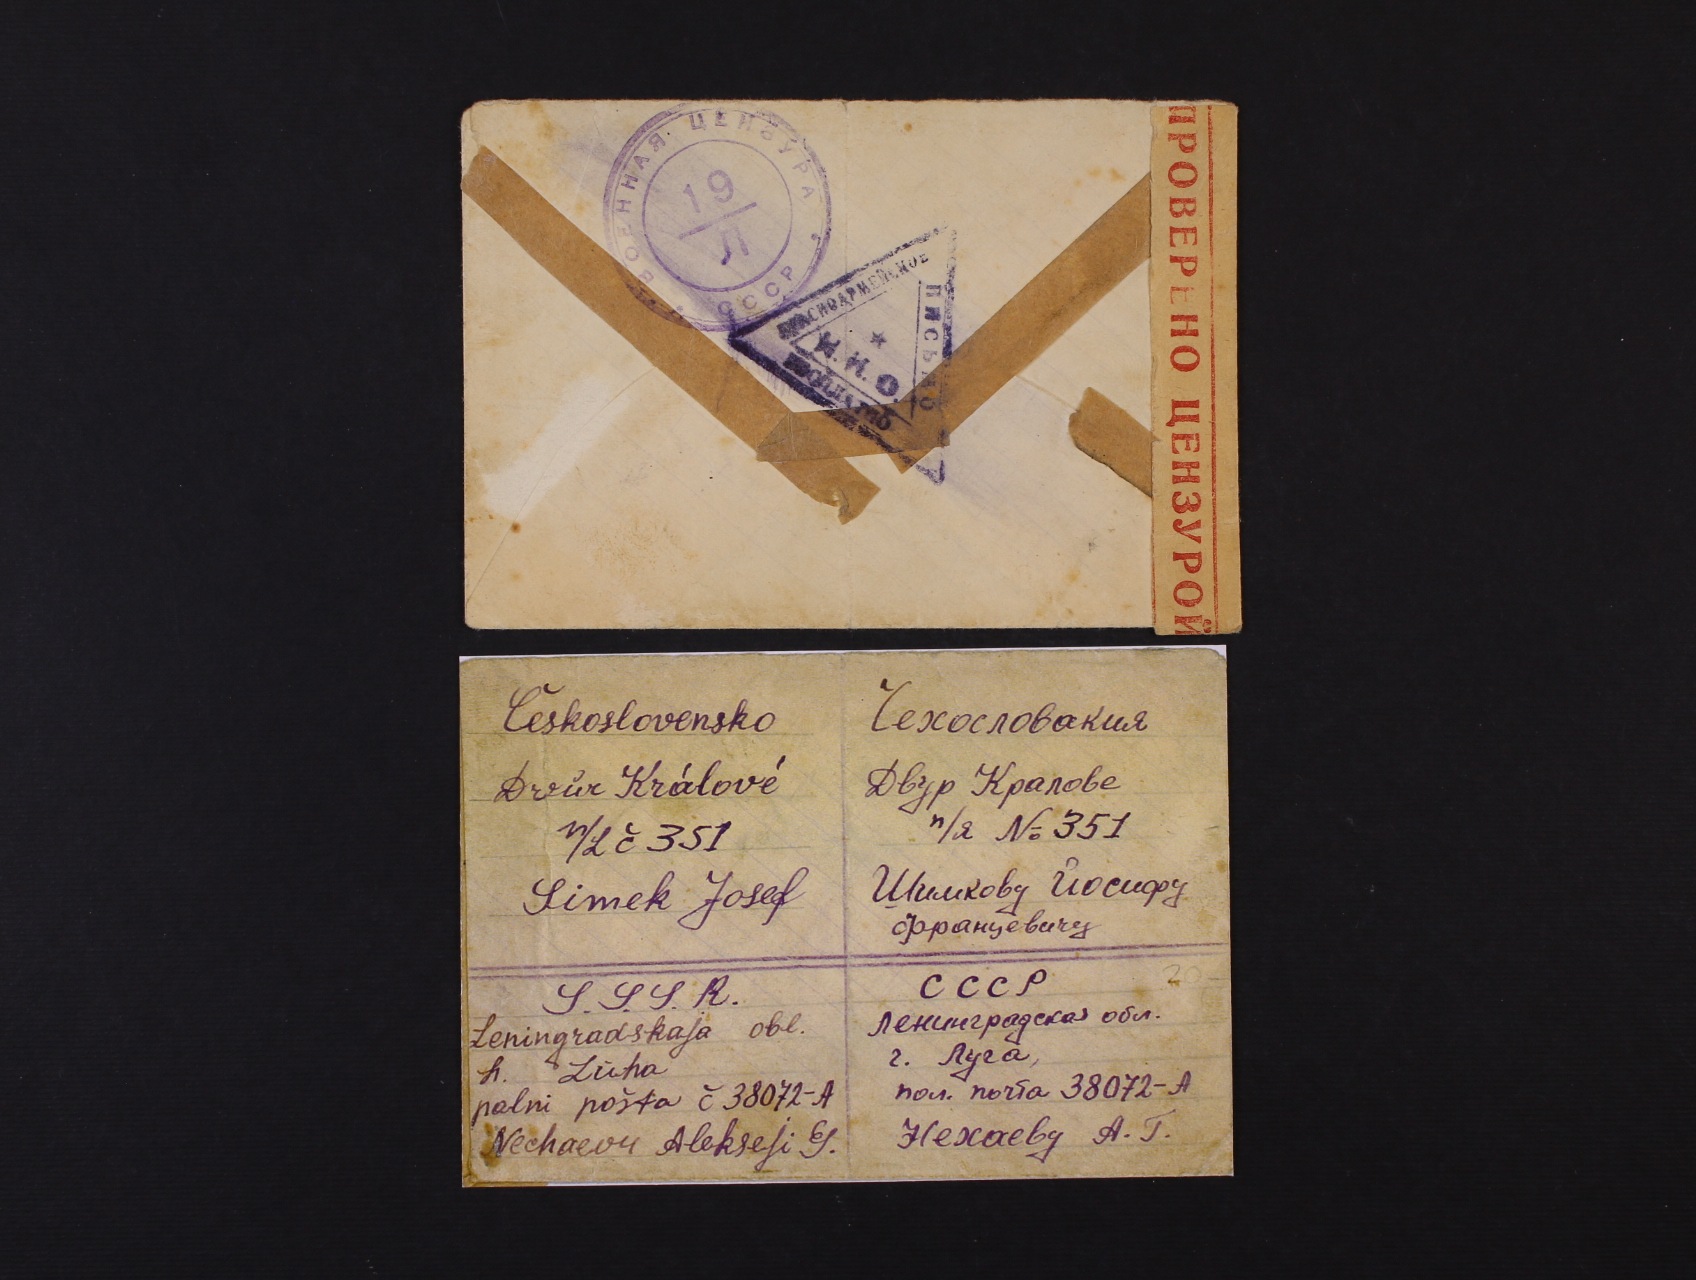 ВОЕННАЯ ЦЕНЗУРА
19
Л
СССР
КРАСНОАРМЕЙСКОЕ
ПИСЬМО
БЕСПЛАТНО
ПРОВЕРЕНО ЦЕНЗУРОЙ
Československo
Dvůr Králové
п/L č 351
Simek Josef
Чехословакия
Двур Кралове
п/я № 351
Шимкову Йосифу
Францевичу
S.S.S.R.
Leningradskaja obl.
h. Luha
polni pošta č 38072-A
Nechaevu Aleksej G.
СССР
20-
Ленинградская обл.
г. Луга,
пол. почта 38072-А
Нехаеву А. Г.